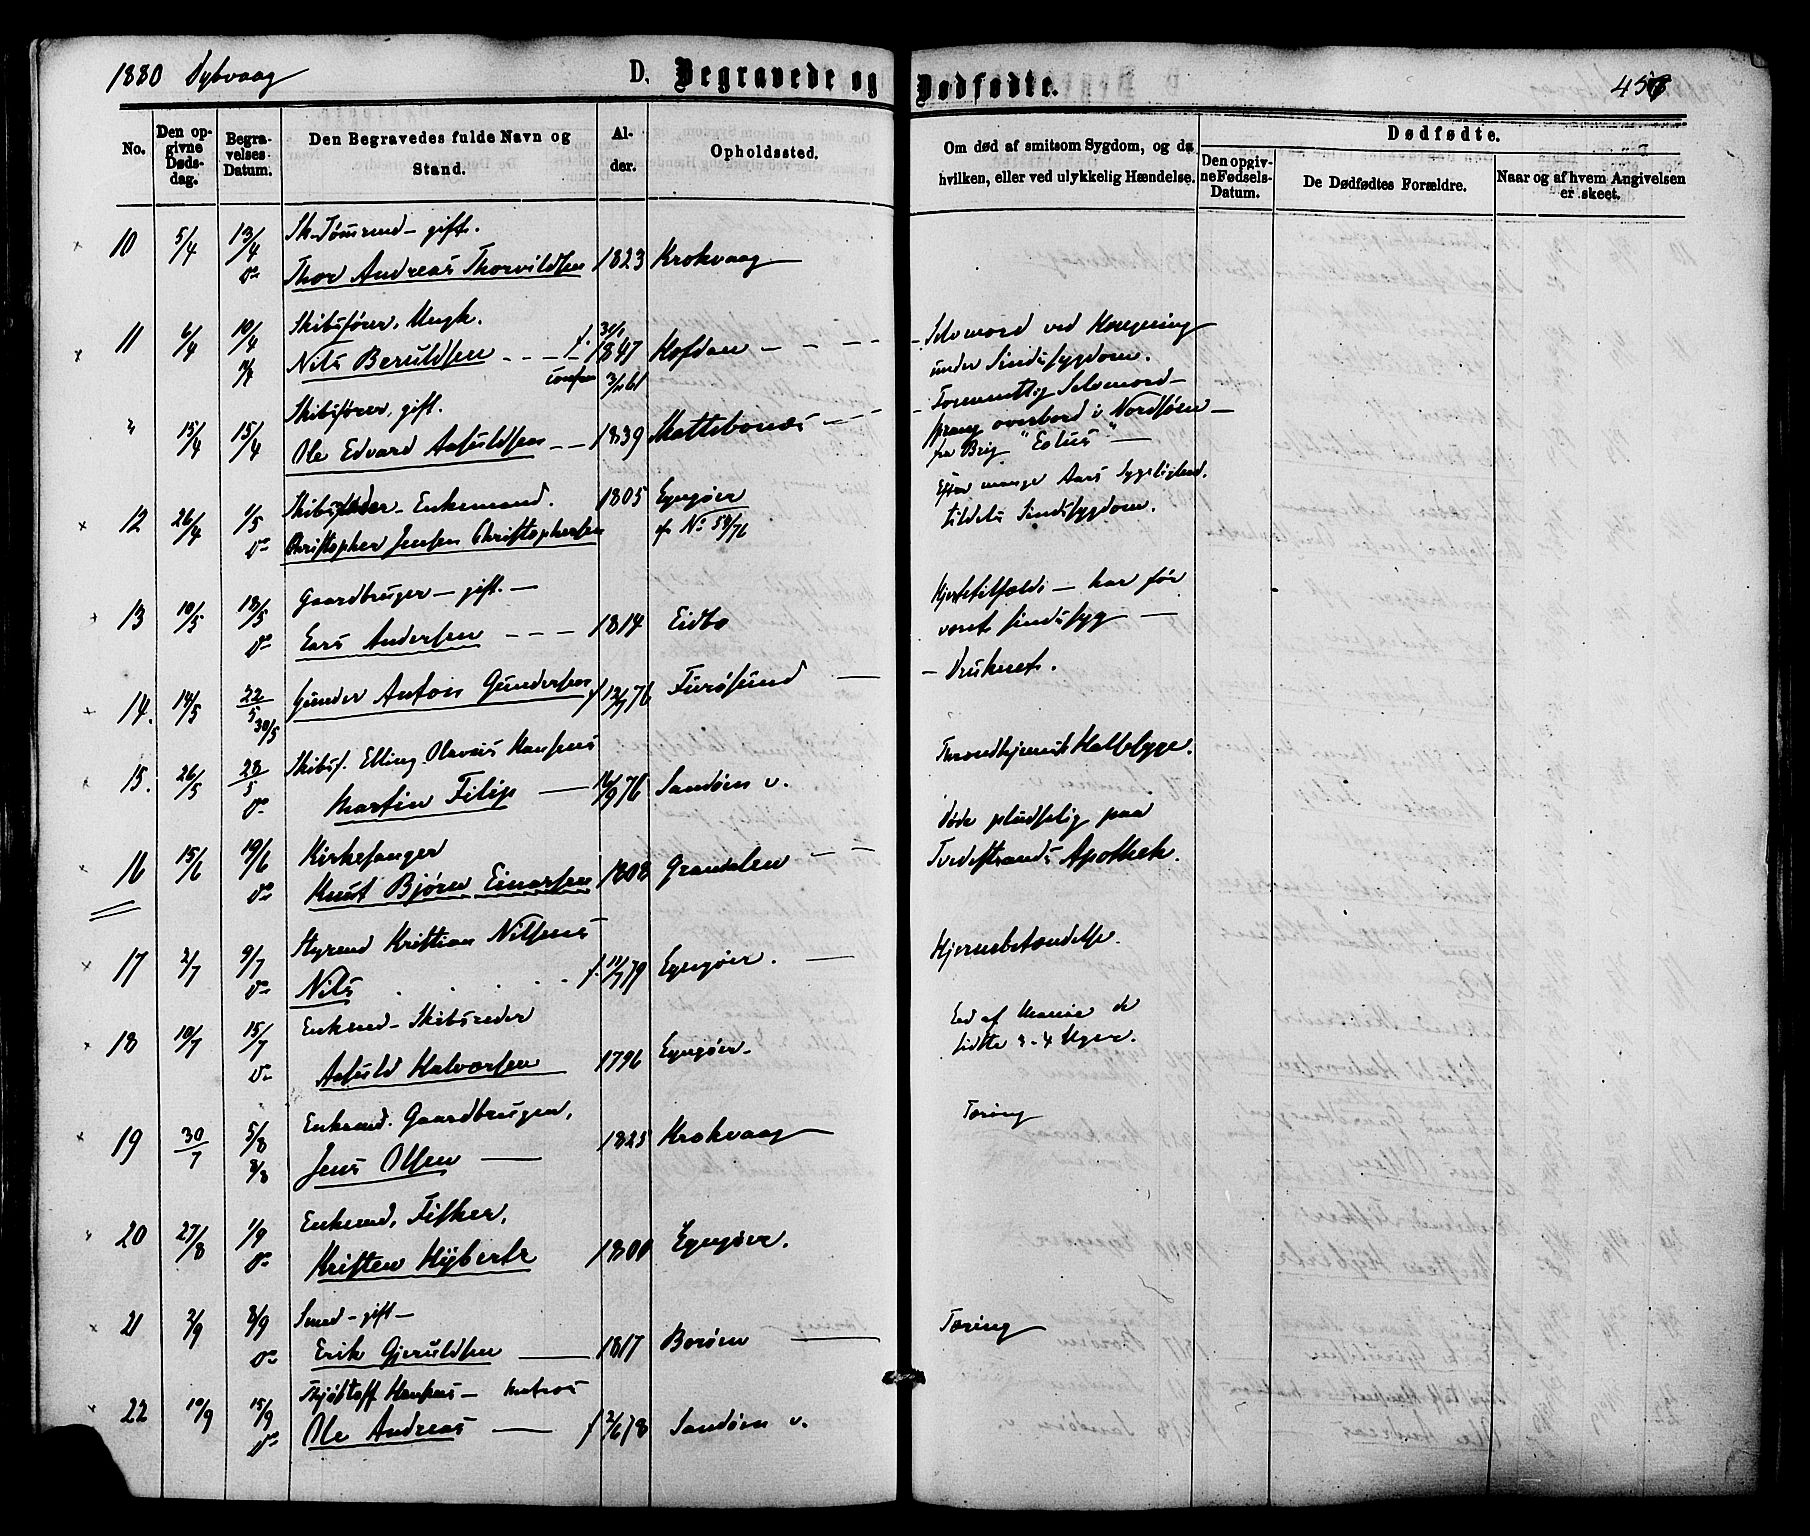 1880 Dybvaag
D. Begravede og Dødfødte.
457
No.
Den opgivne Dødsdag.
Begravelses Datum.
Den Begravedes fulde Navn og Stand.
Alder.
Opholdssted.
Om død af smitsom Sygdom, og da hvilken, eller ved ulykkelig Hændelse.
Dødfødte.
Den opgivne Fødsels-Datum.
De Dødfødtes Forældre.
Naar og af hvem Angivelsen er skeet.
Sk. Tømrmd - gift.
10 5/4 13/4 Thor Andreas Thorvildsen 1823 Krokvaag
Skibsfører, Ungk.
11 6/4 10/4 Nils Beruldsen f. 1847 Hofdan
Selvmord ved Hængning
under Sindssygdom.
Skibsfører, gift.
" 15/4 15/4 Ole Edvard Aasuldsen 1839 Mattebonæs
Formentlig Selvmord -
sprang overbord i Nordsøen -
fra Brig "Eolus"
Skibsreder - Enkemand.
12 26/4 1/5 Christopher Jensen Christophersen 1805 Gyngøer
cfr No 58/76
Efter mange Aars Sygelighed.
tildels Sindssygdom.
Gaardbruger - gift. -
13 10/5 18/5 Lars Andersen 1814 Eidbo
Hjertetilfælde - har før
været sindssyg -
14. 14/5 22/5 30/5 Gunder Anton Gundersen f 12/7 76 Furøsund
- Druknet.
Skibsf. Elling Olavus Hansens
15. 26/5 28/5 Martin Filip 16/9 76 Sandøen v.
Throndhjemsk Halssyge.
Kirkesanger
16 15/6 19/6 Knut Bjørn Einarsen 1808 Grændalen
Døde pludselig paa
Tvedestrands Apothek.
Styrmd Kristian Nilsens
17 2/7 9/7 Nils f. 11/7 79 Gyngøer.
Hjernebetændelse.
Enkemd - Skibsreder
18 10/7 15/7 Aasuld Halvorsen 1796 Gyngøer.
lidte 3-4 Uger.
Enkemd. Gaardbruger.
19 30/7 5/8 8/8 Jens Olsen 1825 Krokvaag
Tæring
Enkemd, Fisker.
20 27/8 1/9 Kristen Hybertz 1800 Gyngøer.
Smed - gift -
21 2/9 8/9 Erik Gjeruldsen 1817 Borøen
Tæring
Kjøstolf Hansens - Matros
22 10/9 15/9 Ole Andreas f 2/6 78 Sandøen v.